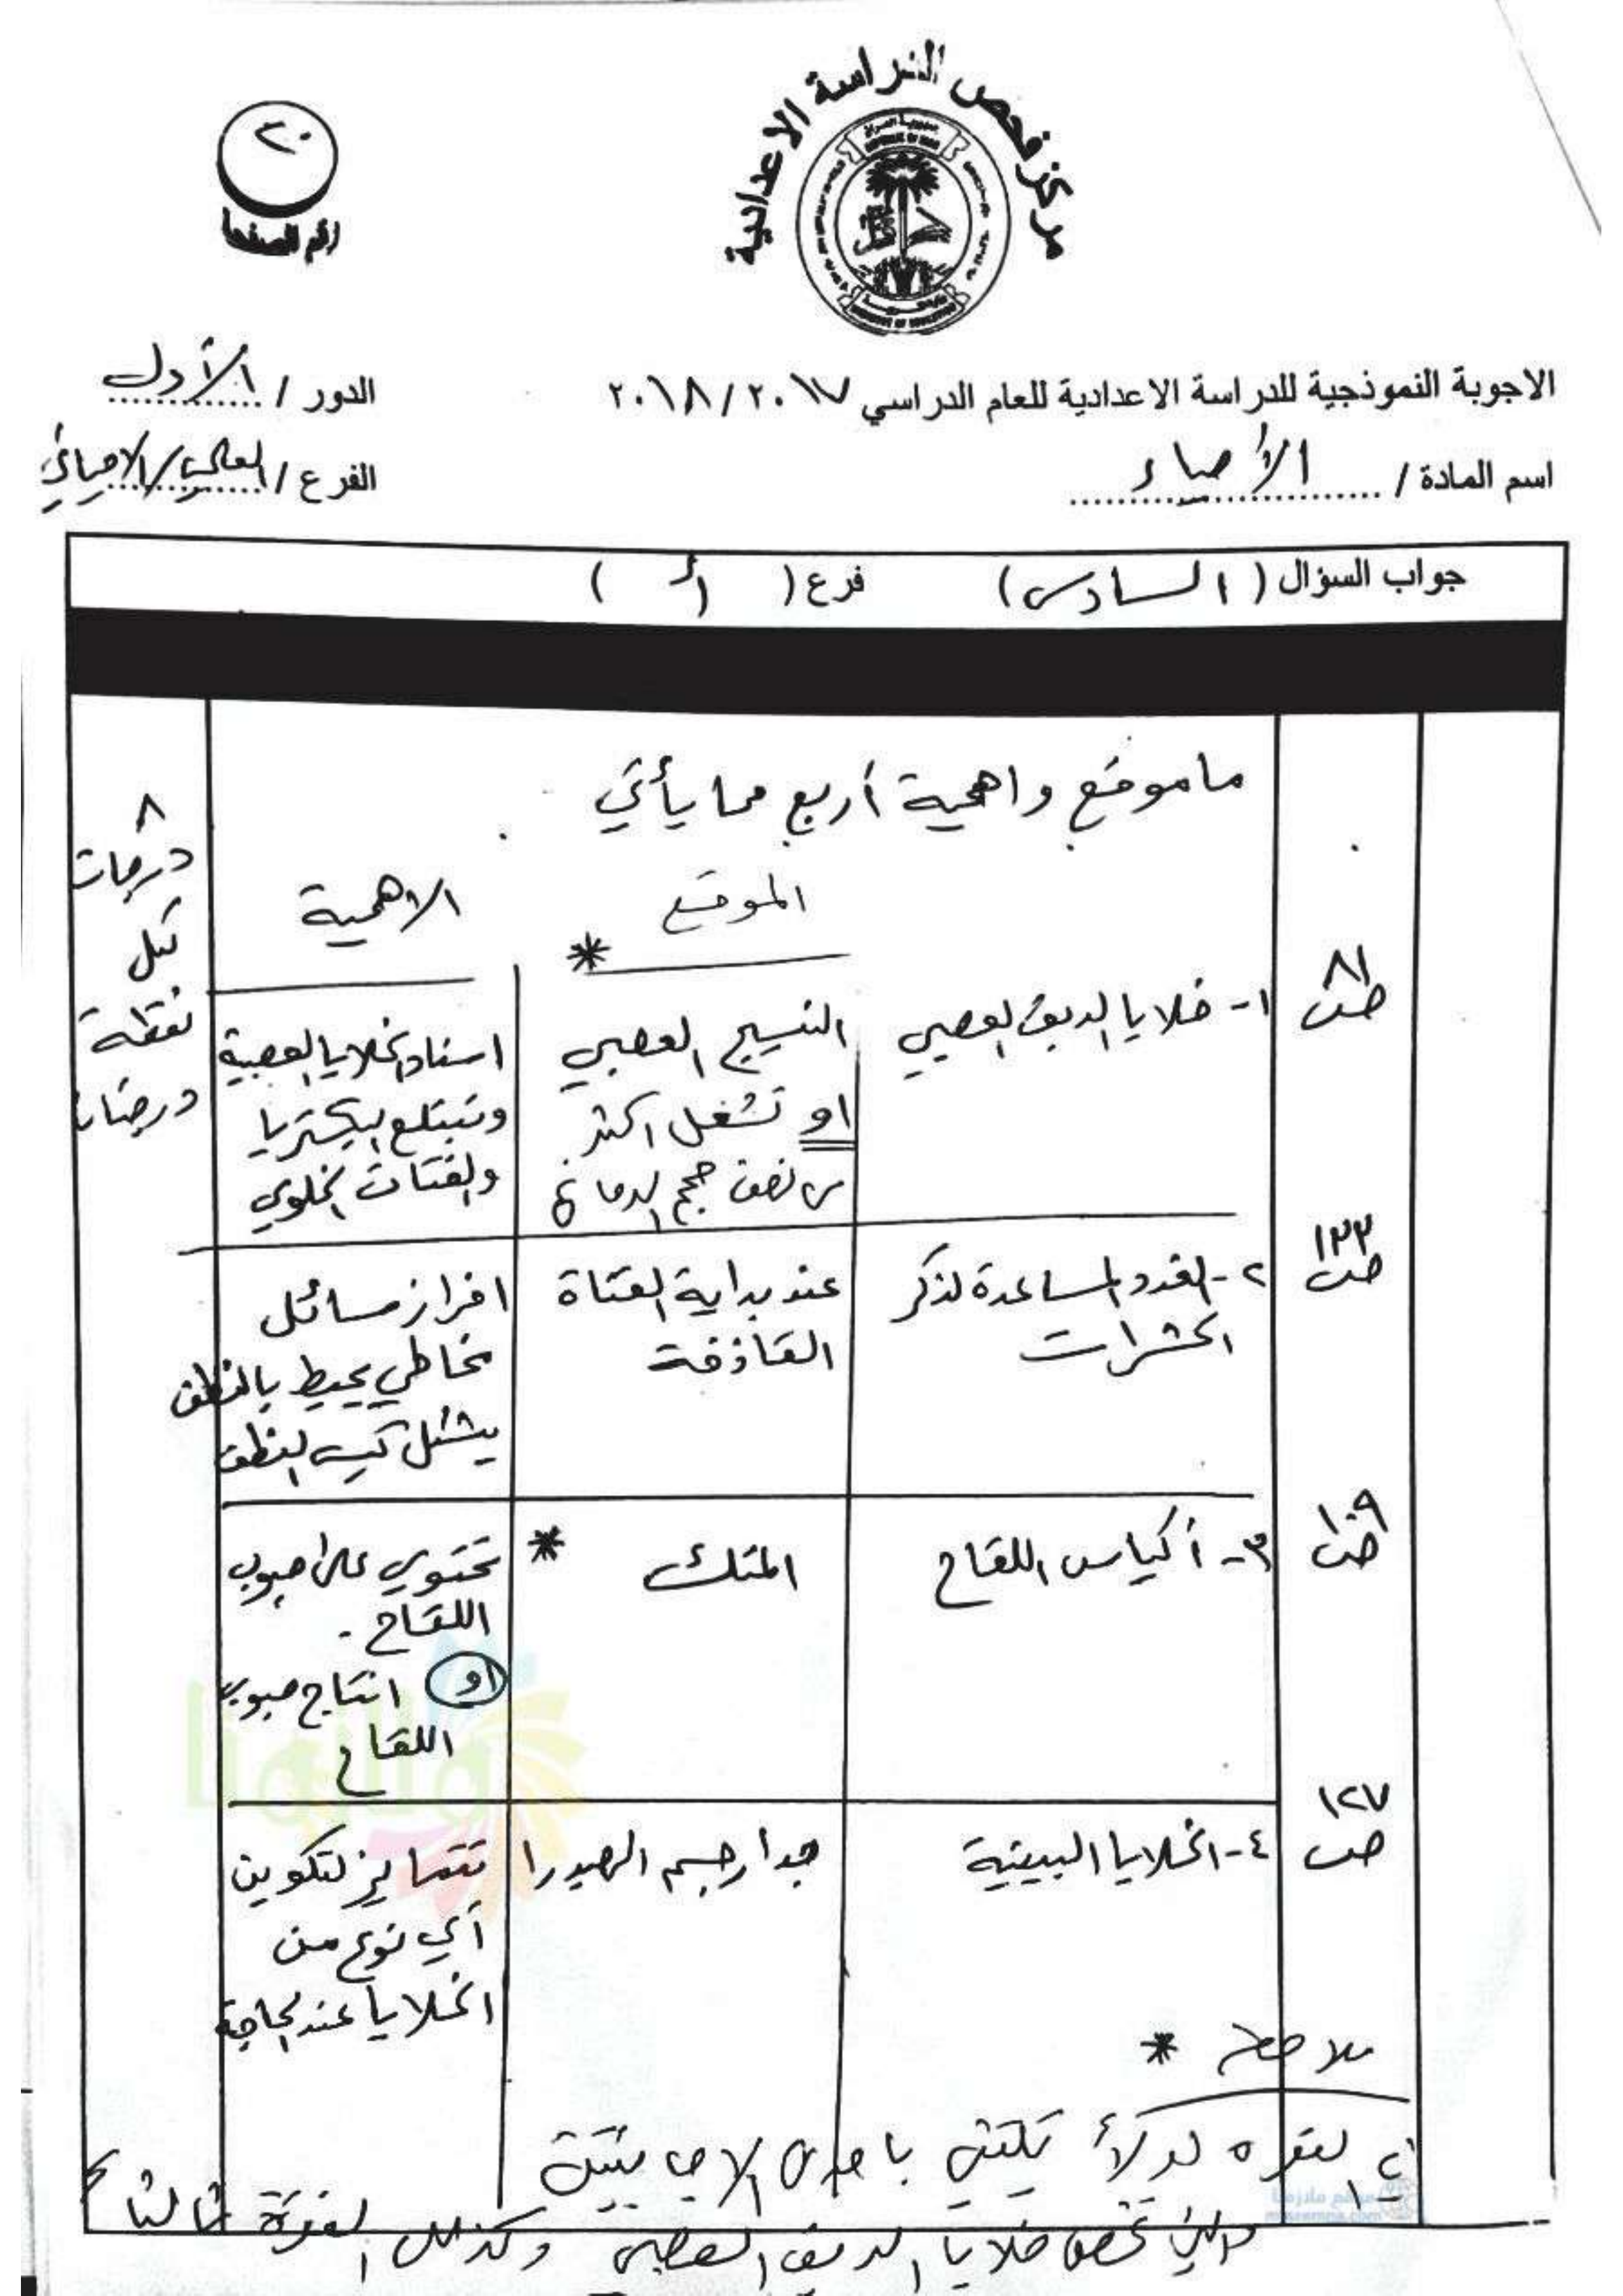 مركز فحص الدراسة الاعدادية
٢٠
رقم الصفحة
الاجوبة النموذجية للدراسة الاعدادية للعام الدراسي ٢٠١٧ / ٢٠١٨
الدور / الأول
اسم المادة / الأحياء
الفرع / العلمي/الاحيائي
جواب السؤال ( السادس ) فرع ( أ )
ما موقع واهمية أربع مما يأتي
٨
درجات
لكل
نقطة
درجتان
الموقع
*
الاهمية
ص ٨١
١- خلايا الدبق العصبي
النسيج العصبي
او تشغل اكثر
من نصف حجم الدماغ
اسناد الخلايا العصبية
وتبتلع البكتريا
والفتات الخلوي
ص ١٣٣
٢- الغدد المساعدة لذكر
الحشرات
عند بداية القناة
القاذفة
افراز سائل
مخاطي يحيط بالنطف
يشكل كيس النطف
ص ١٠٩
٣- أكياس اللقاح
المتك
*
تحتوي على حبوب
اللقاح .
او انتاج حبوب
اللقاح
ص ١٢٧
٤- الخلايا البينية
جدار جسم الهيدرا
تتمايز لتكوين
أي نوع من
الخلايا عند الحاجة
ملاحظة *
يكتفى باحدى الاجابتين
تخص خلايا الدبق العصبي وكذلك الفقرة ثالثا